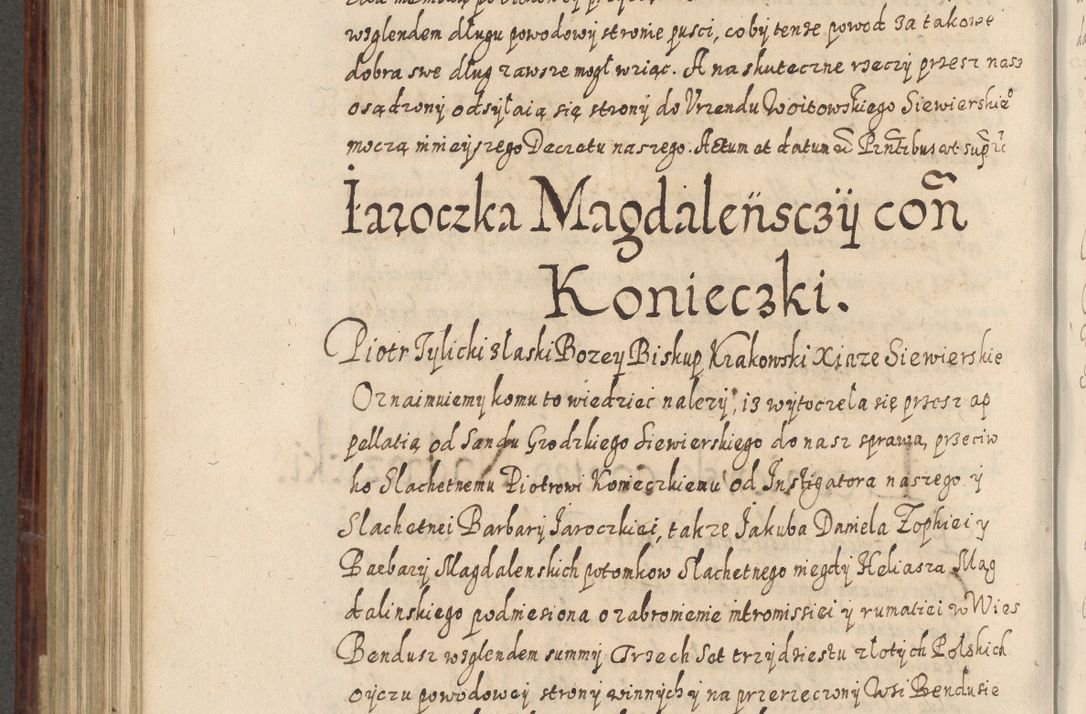 wzglendem długu powodowy stronie pusci, coby tenze powod za takowe
dobra swe dług zawsze mogł wziąc. A na skuteczne rzeczy przesz nasz
osądzony odsyłaią się strony do Vrzendu Woitowskiego Siewierskie⁰
moczą ninieyszego Decretu naszego. Actum et datum ut Pṙntibus ut supra
Iaroczka Magdaleńsczÿ con̄
Konieczki.
Piotr Tylicki z łaski Bozey Biskup Krakowski Xiąze Siewierskie
Oznaimuiemy komu to wiedziec nalezy, iz wytoczela się przesz ap
pellatią od Sandu Grodzkiego Siewierskiego do nasz sprawa, przeciw
ko Slachetnemu Piotrowi Konieczkiemu od Instigatora naszego y
Slachetnei Barbary Jaroczkiei, takze Jakuba Daniela Zophiei y
Barbary Magdalenskich potomkow Slachetnego niegdy Heliasza Mag
dalinskiego podniesiona o zabronienie intromissiei y rumatiei w Wies
Bendusz wzglendem summy Trzech Set trzydziestu złotych Polskich
oyczu powodowey strony winnych y na przerzeczony Wsi Bendusie